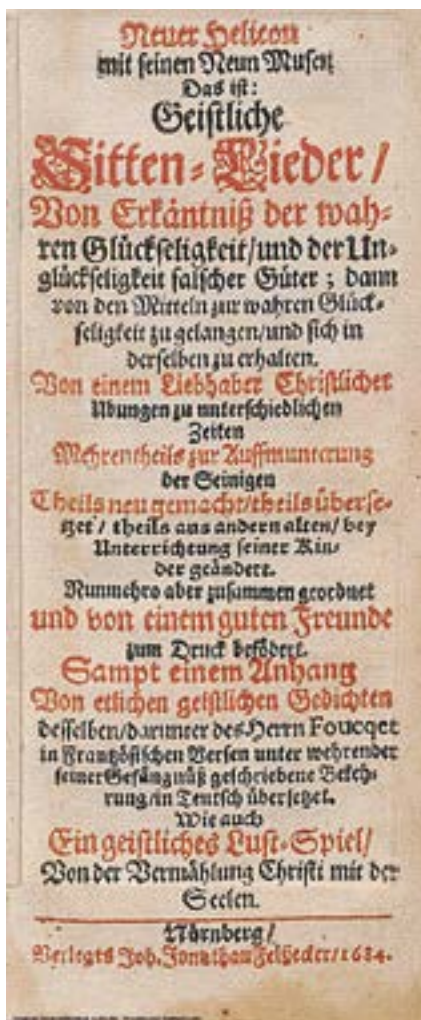 Neuer Helicon
mit seinen Neun Musen
Das ist:
Geistliche
Sitten-Lieder /
Von Erkäntniß der wah-
ren Glückseligkeit/und der Un-
glückseligkeit falscher Güter ; dann
von den Mitteln zur wahren Glück-
seligkeit zu gelangen/und sich in
derselben zu erhalten.
Von einem Liebhaber Christlicher
Ubungen zu unterschiedlichen
Zeiten
Mehrentheils zur Auffmunterung
der Seinigen
Theils neu gemacht/theils überse-
tzet / theils aus andern alten/ bey
Unterrichtung seiner Kin-
der geändert.
Nunmehro aber zusammen geordnet
und von einem guten Freunde
zum Druck befödert.
Sampt einem Anhang
Von etlichen geistlichen Gedichten
desselben/darunter des Herrn Foucqet
in Frantzösischen Versen unter wehrender
seiner Gefängnüß geschriebene Bekeh-
rung/in Teutsch übersetzet.
Wie auch
Ein geistliches Lust-Spiel/
Von der Vermählung Christi mit der
Seelen.
Nürnberg/
Verlegts Joh. Jonathan Felßecker/1684.